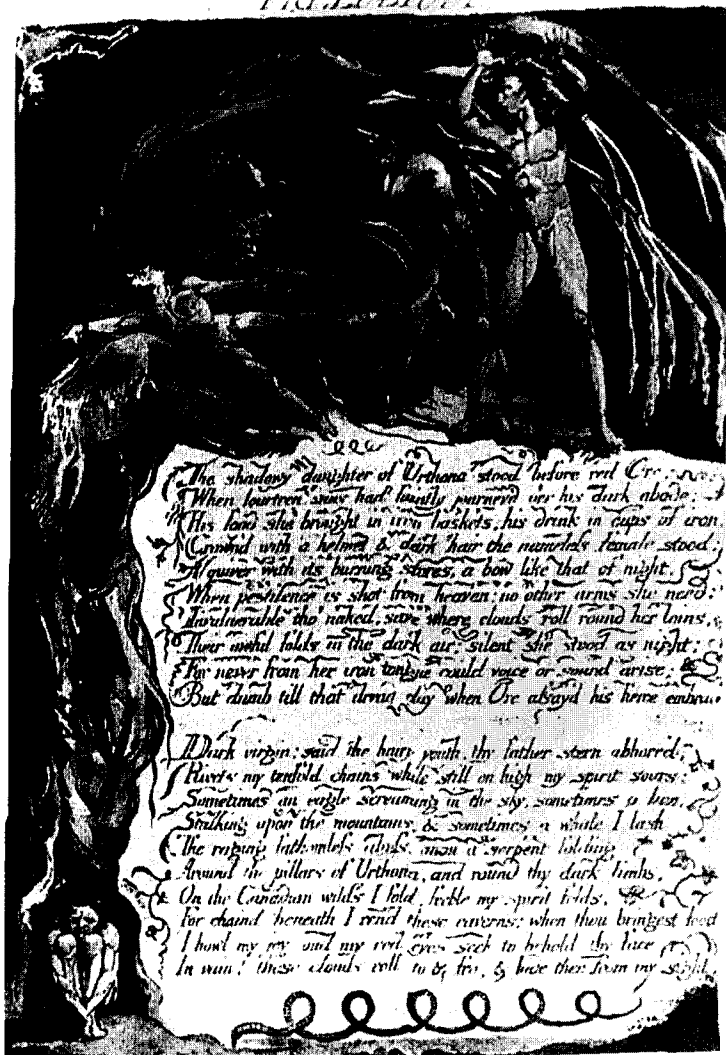 PRELUDIUM
The shadowy daughter of Urthona stood before red Orc
When fourteen suns had faintly journey'd o'er his dark abode;
His food she brought in iron baskets, his drink in cups of iron
Crown'd with a helmet & dark hair the nameless female stood;
A quiver with its burning stores, a bow like that of night,
When pestilence is shot from heaven; no other arms she need:
Invulnerable tho' naked, save where clouds roll round her loins,
Their awful folds in the dark air; silent she stood as night;
For never from her iron tongue could voice or sound arise;
But dumb till that dread day when Orc assay'd his fierce embrace

Dark virgin; said the hairy youth, thy father stern abhorr'd;
Rivets my tenfold chains while still on high my spirit soars;
Sometimes an eagle screaming in the sky, sometimes a lion,
Stalking upon the mountains, & sometimes a whale I lash
The raging fathomless abyss, anon a serpent folding
Around the pillars of Urthona, and round thy dark limbs,
On the Canadian wilds I fold, feeble my spirit folds.
For chaind beneath I rend these caverns; when thou bringest food
I howl my joy and my red eyes seek to behold thy face
In vain! these clouds roll to & fro, & hide thee from my sight